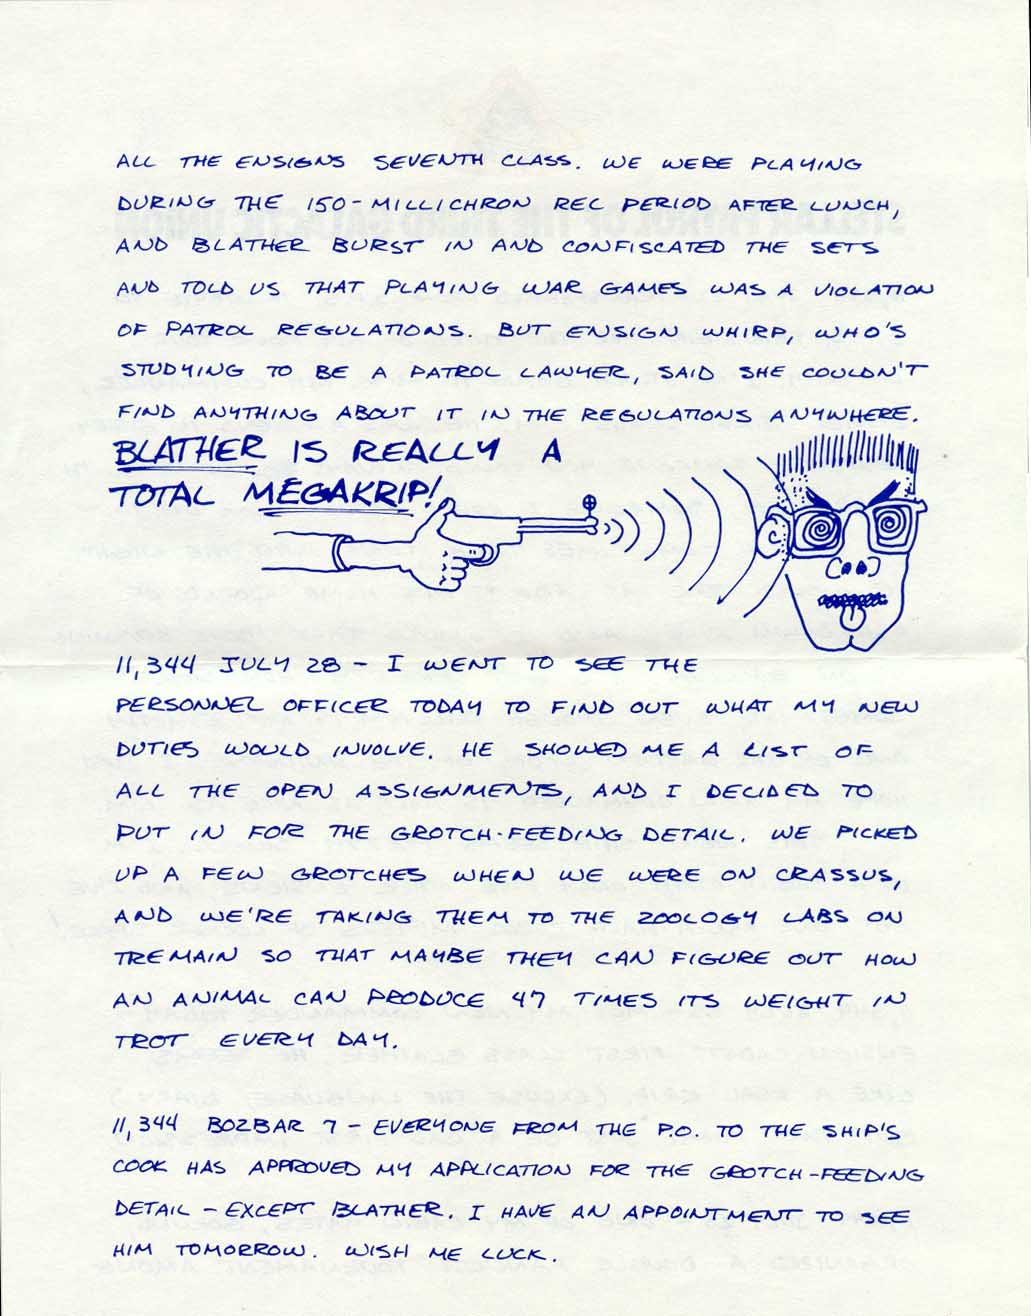 ALL THE ENSIGNS SEVENTH CLASS. WE WERE PLAYING
DURING THE 150-MILLICHRON REC PERIOD AFTER LUNCH,
AND BLATHER BURST IN AND CONFISCATED THE SETS
AND TOLD US THAT PLAYING WAR GAMES WAS A VIOLATION
OF PATROL REGULATIONS. BUT ENSIGN WHIRP, WHO'S
STUDYING TO BE A PATROL LAWYER, SAID SHE COULDN'T
FIND ANYTHING ABOUT IT IN THE REGULATIONS ANYWHERE.
BLATHER IS REALLY A
TOTAL MEGAKRIP!
11,344 JULY 28 - I WENT TO SEE THE
PERSONNEL OFFICER TODAY TO FIND OUT WHAT MY NEW
DUTIES WOULD INVOLVE. HE SHOWED ME A LIST OF
ALL THE OPEN ASSIGNMENTS, AND I DECIDED TO
PUT IN FOR THE GROTCH-FEEDING DETAIL. WE PICKED
UP A FEW GROTCHES WHEN WE WERE ON CRASSUS,
AND WE'RE TAKING THEM TO THE ZOOLOGY LABS ON
TREMAIN SO THAT MAYBE THEY CAN FIGURE OUT HOW
AN ANIMAL CAN PRODUCE 47 TIMES ITS WEIGHT IN
TROT EVERY DAY.
11,344 BOZBAR 7 - EVERYONE FROM THE P.O. TO THE SHIP'S
COOK HAS APPROVED MY APPLICATION FOR THE GROTCH-FEEDING
DETAIL - EXCEPT BLATHER. I HAVE AN APPOINTMENT TO SEE
HIM TOMORROW. WISH ME LUCK.